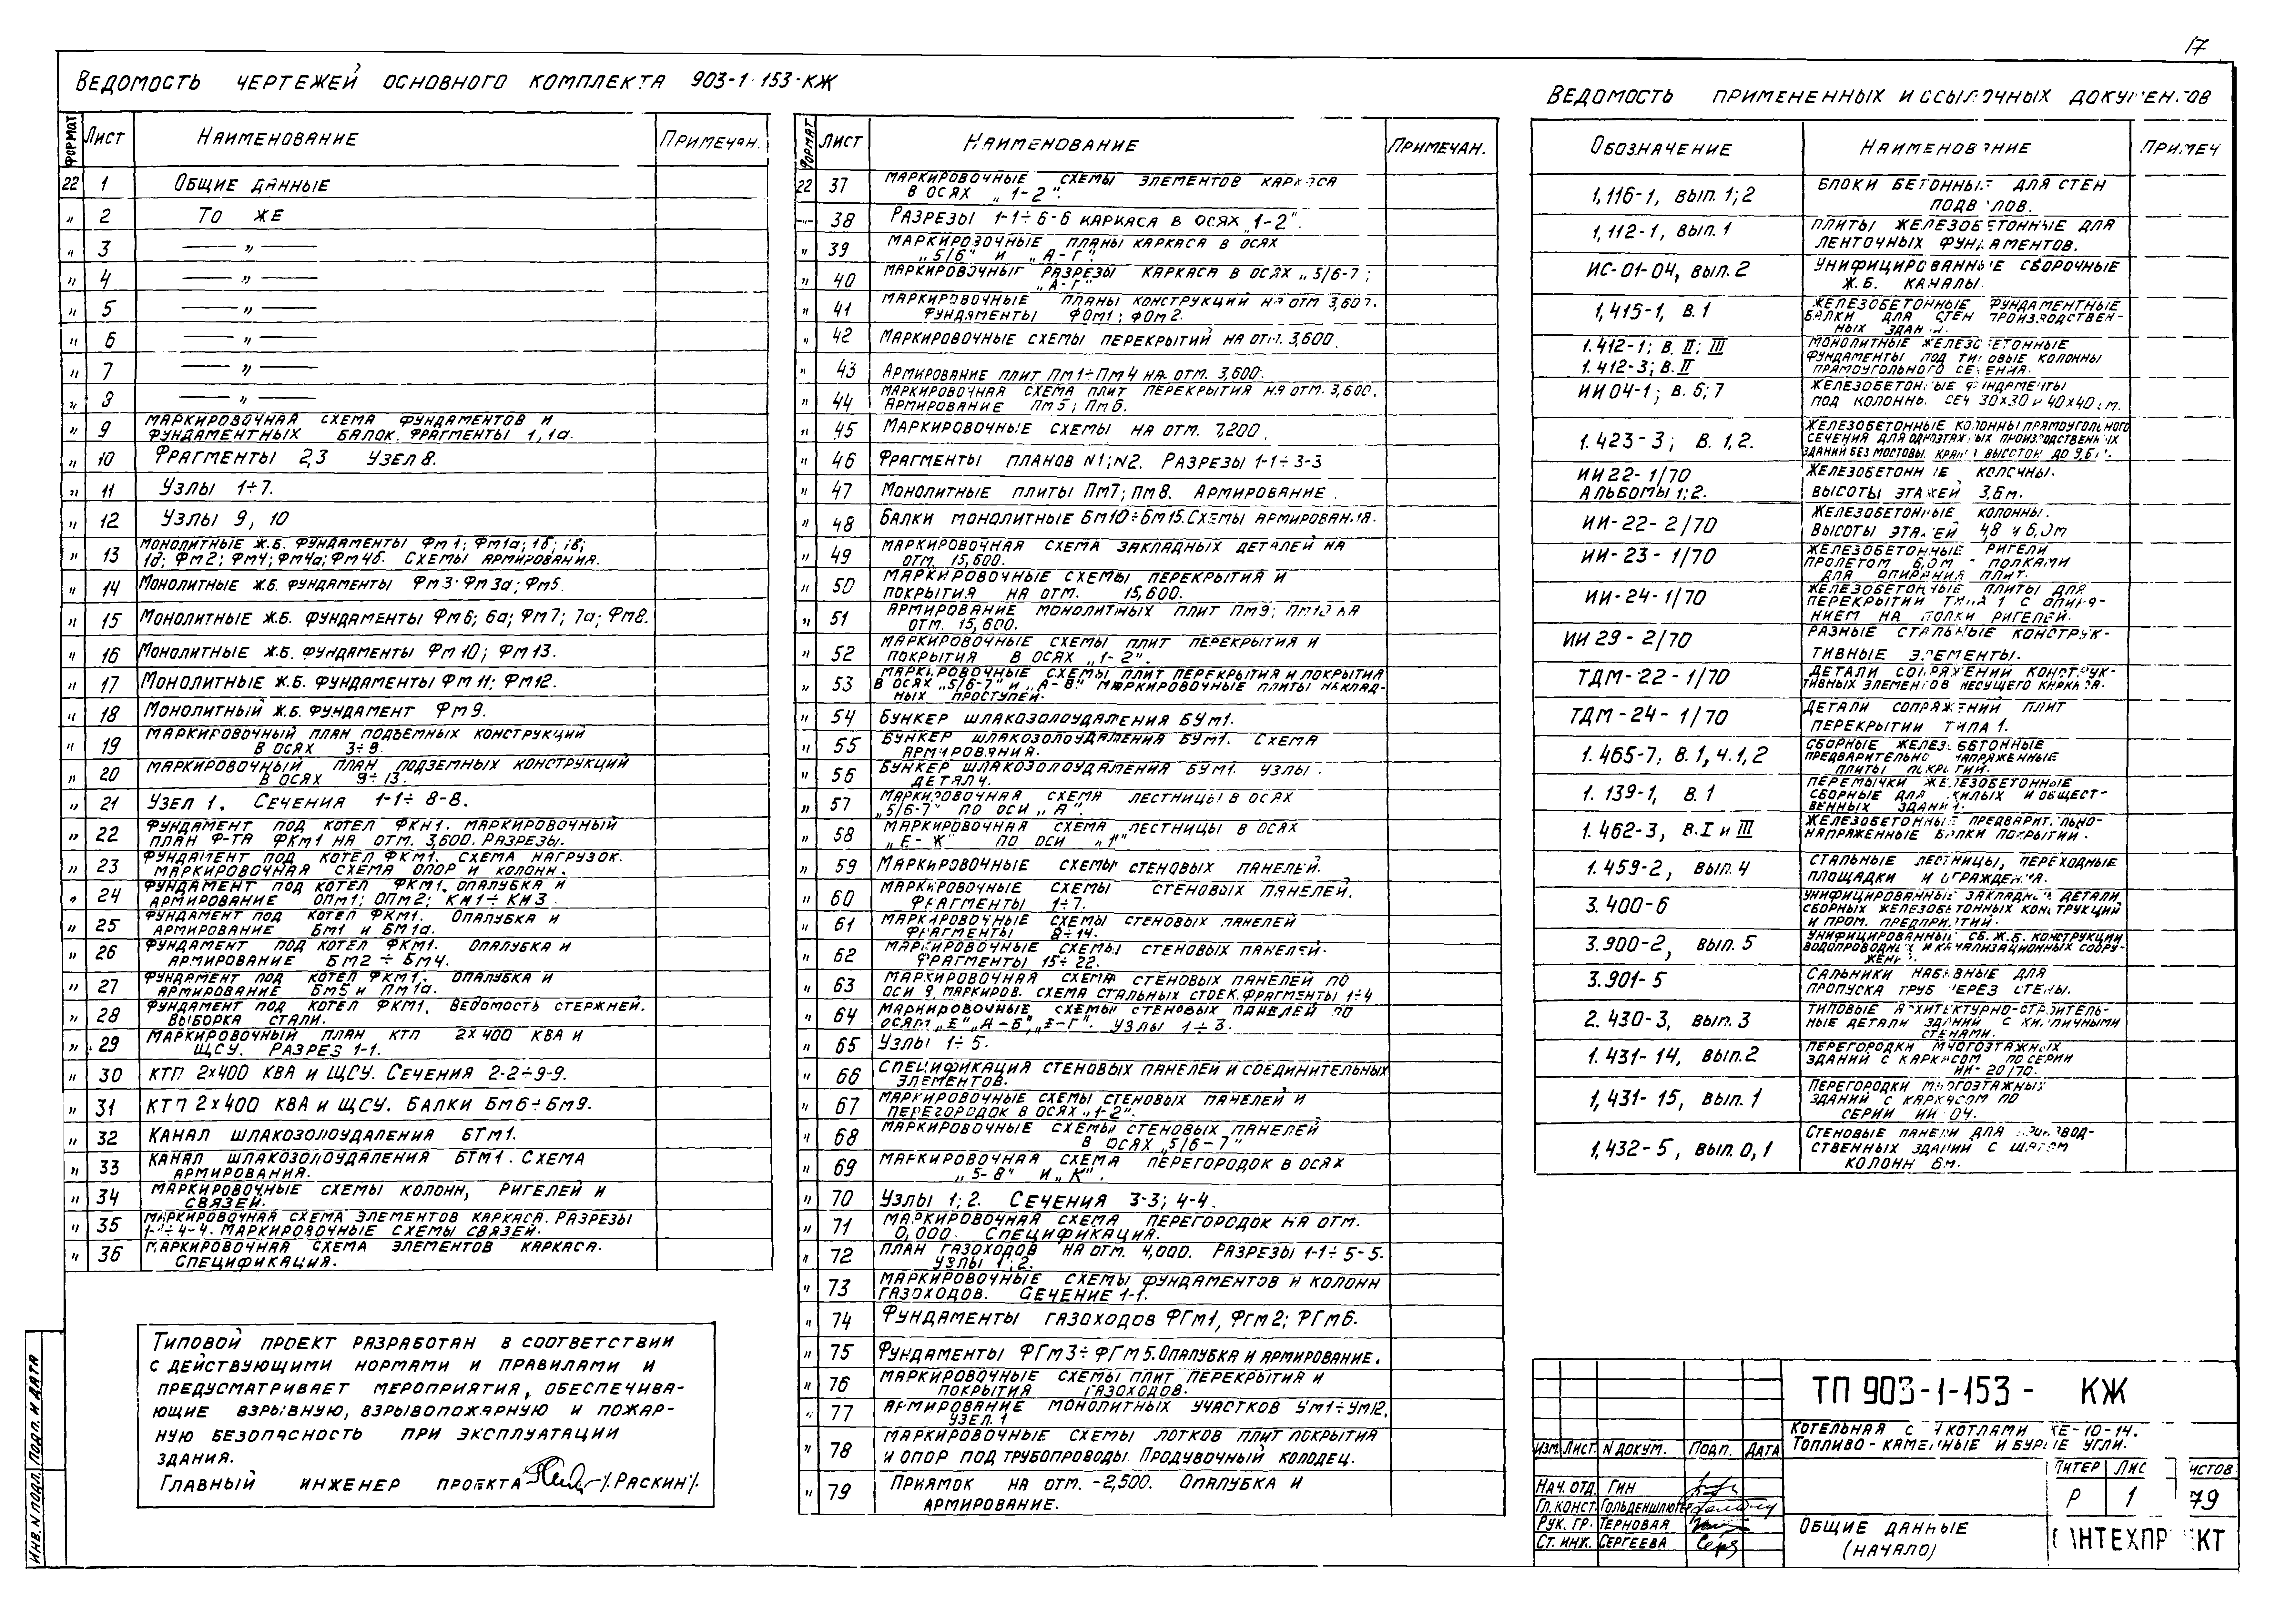 17
Ведомость чертежей основного комплекта 903-1-153-КЖ
Формат Лист Наименование Примечан.
22 1 Общие данные
" 2 То же
" 3 — " —
" 4 — " —
" 5 — " —
" 6 — " —
" 7 — " —
" 8 — " —
" 9 Маркировочная схема фундаментов и
фундаментных балок. Фрагменты 1, 1а.
" 10 Фрагменты 2,3 Узел 8.
" 11 Узлы 1÷7.
" 12 Узлы 9, 10
" 13 Монолитные ж.б. фундаменты Фм1; Фм1а; 1б; 1в;
1д; Фм2; Фм4; Фм4а; Фм4б. Схемы армирования.
" 14 Монолитные ж.б. фундаменты Фм3; Фм3а; Фм5.
" 15 Монолитные ж.б. фундаменты Фм6; 6а; Фм7; 7а; Фм8.
" 16 Монолитные ж.б. фундаменты Фм10; Фм13.
" 17 Монолитные ж.б. фундаменты Фм11; Фм12.
" 18 Монолитный ж.б. фундамент Фм9.
" 19 Маркировочный план подъемных конструкций
в осях 3÷9.
" 20 Маркировочный план подземных конструкций
в осях 9÷13.
" 21 Узел 1. Сечения 1-1÷8-8.
" 22 Фундамент под котел ФКН1. Маркировочный
план ф-та ФКм1 на отм. 3,600. Разрезы.
" 23 Фундамент под котел ФКм1. Схема нагрузок.
Маркировочная схема опор и колонн.
" 24 Фундамент под котел ФКм1. Опалубка и
армирование ОПм1; ОПм2; КМ1÷КМ3.
" 25 Фундамент под котел ФКм1. Опалубка и
армирование Бм1 и Бм1а.
" 26 Фундамент под котел ФКм1. Опалубка и
армирование Бм2÷Бм4.
" 27 Фундамент под котел ФКм1. Опалубка и
армирование Бм5 и Пм1а.
" 28 Фундамент под котел ФКм1. Ведомость стержней.
Выборка стали.
" 29 Маркировочный план КТП 2×400 КВА и
ЩСУ. Разрез 1-1.
" 30 КТП 2×400 КВА и ЩСУ. Сечения 2-2÷9-9.
" 31 КТП 2×400 КВА и ЩСУ. Балки Бм6÷Бм9.
" 32 Канал шлакозолоудаления БТм1.
" 33 Канал шлакозолоудаления БТм1. Схема
армирования.
" 34 Маркировочные схемы колонн, ригелей и
связей.
" 35 Маркировочная схема элементов каркаса. Разрезы
1-1÷4-4. Маркировочные схемы связей.
" 36 Маркировочная схема элементов каркаса.
Спецификация.
Типовой проект разработан в соответствии
с действующими нормами и правилами и
предусматривает мероприятия, обеспечива-
ющие взрывную, взрывопожарную и пожар-
ную безопасность при эксплуатации
здания.
Главный инженер проекта /Раскин/.
Инв. N подл. Подп. и дата
Формат Лист Наименование Примечан.
22 37 Маркировочные схемы элементов каркаса
в осях „1-2".
-"- 38 Разрезы 1-1÷6-6 каркаса в осях „1-2".
" 39 Маркировочные планы каркаса в осях
„5/6" и „А-Г".
" 40 Маркировочные разрезы каркаса в осях „5/6-7;
„А-Г"
" 41 Маркировочные планы конструкций на отм 3,600.
Фундаменты ФОм1; ФОм2.
" 42 Маркировочные схемы перекрытий на отм. 3,600
" 43 Армирование плит Пм1÷Пм4 на отм. 3,600.
" 44 Маркировочная схема плит перекрытия на отм. 3,600.
Армирование Пм5; Пм6.
" 45 Маркировочные схемы на отм. 7,200.
" 46 Фрагменты планов N1; N2. Разрезы 1-1÷3-3
" 47 Монолитные плиты Пм7; Пм8. Армирование.
" 48 Балки монолитные Бм10÷Бм15. Схемы армирования.
" 49 Маркировочная схема закладных деталей на
отм. 15,600.
" 50 Маркировочные схемы перекрытия и
покрытия на отм. 15,600.
" 51 Армирование монолитных плит Пм9; Пм10 на
отм. 15,600.
" 52 Маркировочные схемы плит перекрытия и
покрытия в осях „1-2".
" 53 Маркировочные схемы плит перекрытия и покрытия
в осях „5/6-7" и „А-В". Маркировочные плиты наклад-
ных проступей.
" 54 Бункер шлакозолоудаления БУм1.
" 55 Бункер шлакозолоудаления БУм1. Схема
армирования.
" 56 Бункер шлакозолоудаления БУм1. Узлы.
Детали.
" 57 Маркировочная схема лестницы в осях
„5/6-7" по оси „А".
" 58 Маркировочная схема лестницы в осях
„Е-Ж" по оси „1"
" 59 Маркировочные схемы стеновых панелей.
" 60 Маркировочные схемы стеновых панелей.
Фрагменты 1÷7.
" 61 Маркировочные схемы стеновых панелей
Фрагменты 8÷14.
" 62 Маркировочные схемы стеновых панелей.
Фрагменты 15÷22.
" 63 Маркировочная схема стеновых панелей по
оси 9. Маркиров. схема стальных стоек. Фрагменты 1÷4
" 64 Маркировочные схемы стеновых панелей по
осям „Е" „А-Б", „Е-Г". Узлы 1÷3.
" 65 Узлы 1÷5.
" 66 Спецификация стеновых панелей и соединительных
элементов.
" 67 Маркировочные схемы стеновых панелей и
перегородок в осях „1-2".
" 68 Маркировочные схемы стеновых панелей
в осях „5/6-7"
" 69 Маркировочная схема перегородок в осях
„5-8" и „К".
" 70 Узлы 1; 2. Сечения 3-3; 4-4.
" 71 Маркировочная схема перегородок на отм.
0,000. Спецификация.
" 72 План газоходов на отм. 4,000. Разрезы 1-1÷5-5.
Узлы 1; 2.
" 73 Маркировочные схемы фундаментов и колонн
газоходов. Сечение 1-1.
" 74 Фундаменты газоходов ФГм1, ФГм2; ФГм6.
" 75 Фундаменты ФГм3÷ФГм5. Опалубка и армирование.
" 76 Маркировочные схемы плит перекрытия и
покрытия газоходов.
" 77 Армирование монолитных участков Ум1÷Ум12.
Узел 1
" 78 Маркировочные схемы лотков плит покрытия
и опор под трубопроводы. Продувочный колодец.
" 79 Приямок на отм. -2,500. Опалубка и
армирование.
Ведомость примененных и ссылочных документов
Обозначение Наименование Примеч
1,116-1, вып. 1; 2 Блоки бетонные для стен
подвалов.
1,112-1, вып. 1 Плиты железобетонные для
ленточных фундаментов.
ИС-01-04, вып. 2 Унифицированные сборочные
ж.б. каналы.
1,415-1, в. 1 Железобетонные фундаментные
балки для стен производствен-
ных зданий.
1.412-1; в. II; III
1.412-3; в. II Монолитные железобетонные
фундаменты под типовые колонны
прямоугольного сечения.
ИИ 04-1; в. 6; 7 Железобетонные фундаменты
под колонны сеч 30×30 и 40×40 см.
1.423-3; в. 1, 2. Железобетонные колонны прямоугольного
сечения для одноэтажных производственных
зданий без мостовых кранов высотой до 9,6 м.
ИИ 22-1/70
Альбомы 1; 2. Железобетонные колонны.
Высоты этажей 3,6 м.
ИИ-22-2/70 Железобетонные колонны.
Высоты этажей 4,8 и 6,0 м
ИИ-23-1/70 Железобетонные ригели
пролетом 6,0 м - полками
для опирания плит.
ИИ-24-1/70 Железобетонные плиты для
перекрытий типа 1 с опира-
нием на полки ригелей.
ИИ 29-2/70 Разные стальные конструк-
тивные элементы.
ТДМ-22-1/70 Детали сопряжений конструк-
тивных элементов несущего каркаса.
ТДМ-24-1/70 Детали сопряжений плит
перекрытий типа 1.
1.465-7, в. 1, ч. 1, 2 Сборные железобетонные
предварительно напряженные
плиты покрытий.
1.139-1, в. 1 Перемычки железобетонные
сборные для жилых и общест-
венных зданий.
1.462-3, в. I и III Железобетонные предварительно-
напряженные балки покрытий.
1.459-2, вып. 4 Стальные лестницы, переходные
площадки и ограждения.
3.400-6 Унифицированные закладные детали
сборных железобетонных конструкций
и пром. предприятий.
3.900-2, вып. 5 Унифицированные сб. ж.б. конструкции
водопроводных и канализационных соору-
жений.
3.901-5 Сальники набивные для
пропуска труб через стены.
2.430-3, вып. 3 Типовые архитектурно-строитель-
ные детали зданий с кирпичными
стенами.
1.431-14, вып. 2 Перегородки многоэтажных
зданий с каркасом по серии
ИИ-20/70.
1,431-15, вып. 1 Перегородки многоэтажных
зданий с каркасом по
серии ИИ-04.
1,432-5, вып. 0, 1 Стеновые панели для производ-
ственных зданий с шагом
колонн 6 м.
ТП 903-1-153- КЖ
Котельная с котлами КЕ-10-14.
Топливо-каменные и бурые угли.
Изм. Лист N докум. Подп. Дата
Нач. отд. Гин
Гл. конст. Гольденшлюгер
Рук. гр. Терновая
Ст. инж. Сергеева
Общие данные
(начало)
Литер Лист Листов
Р 1 79
Сантехпроект